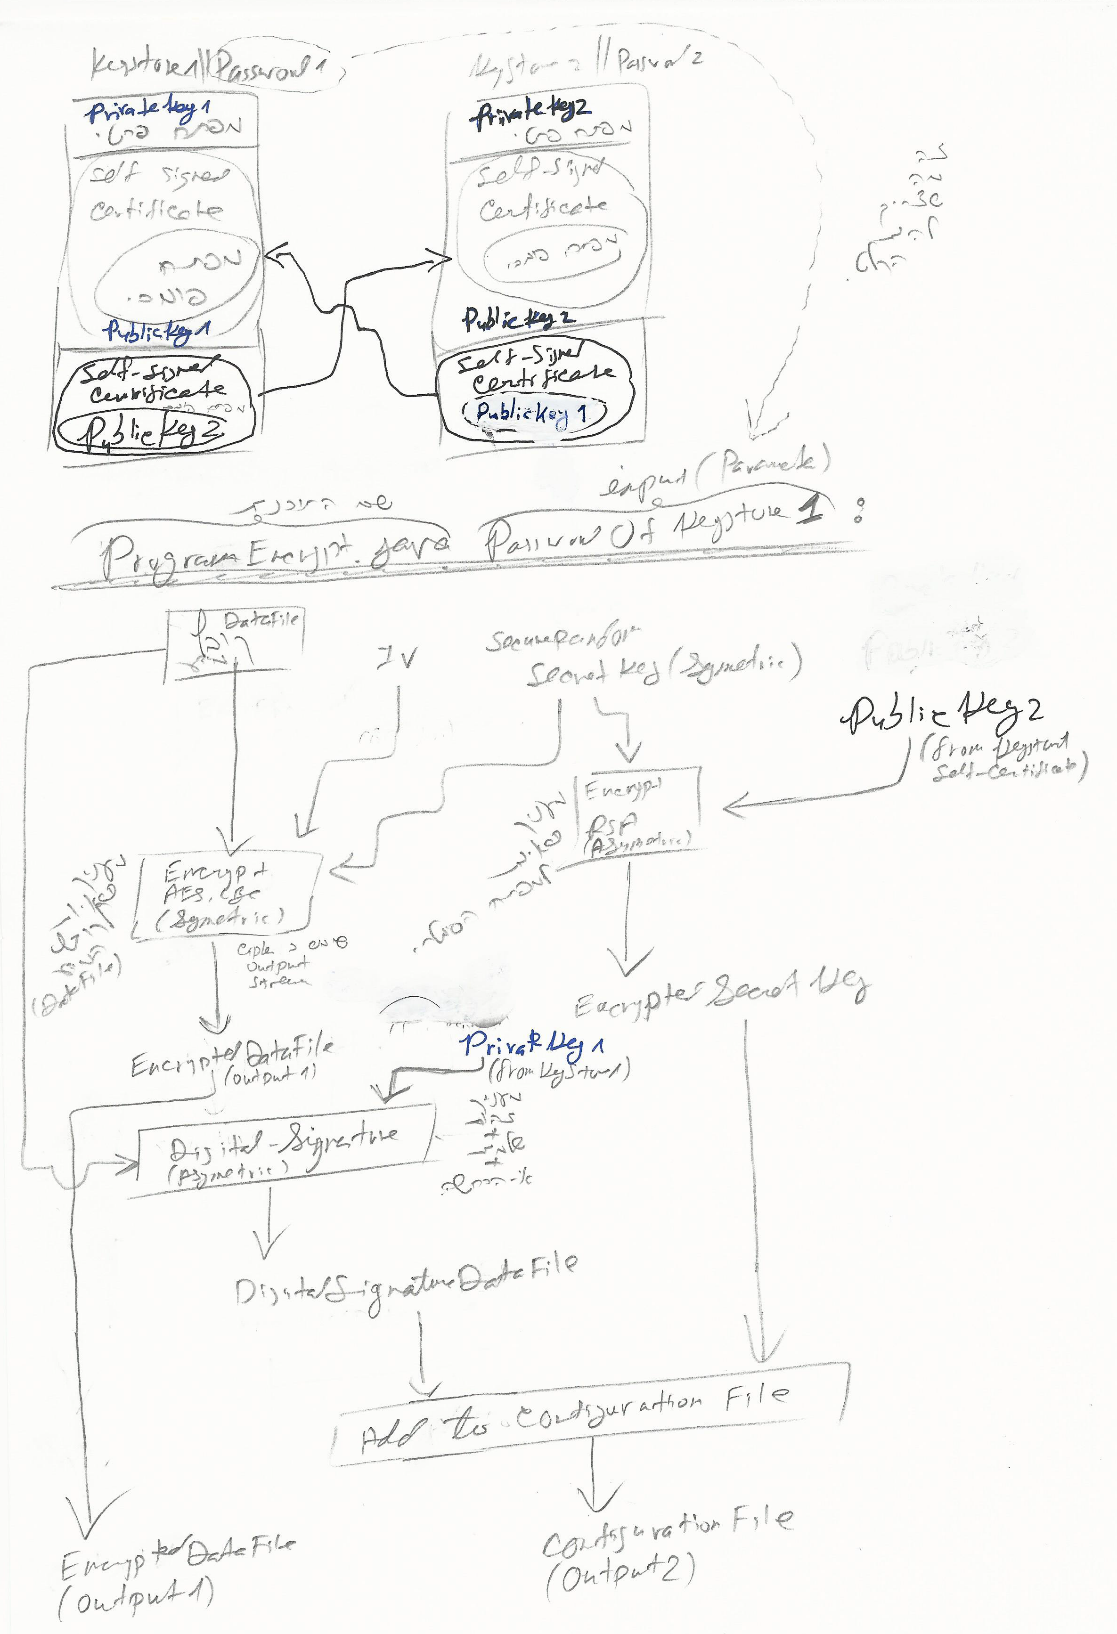 Keystore1||Password1
Keystore2||Password2
PrivateKey1
מפתח פרטי
Self Signed
Certificate
מפתח
פומבי
PublicKey1
Self-Signed
Certificate
PublicKey2
PrivateKey2
מפתח פרטי
Self-Signed
Certificate
מפתח פומבי
PublicKey2
Self-Signed
Certificate
PublicKey1
זה
מה
שצריך
input (Parameter)
שם התוכנית
ProgramEncrypt.java Password Of Keystore 1 :
DataFile
IV
SecureRandom
Secret Key (Symetric)
PublicKey2
(from Keystore1
Self-Certificate)
Encrypt
RSA
(Asymetric)
Encrypt
AES, CBC
(Symetric)
(DataFile)
Output
Stream
EncryptedSecretKey
EncryptedDataFile
(output1)
PrivateKey1
(from Keystore1)
Digital-Signature
(Asymetric)
אי-הכחשה
DigitalSignatureDataFile
Add to Configuration File
EncryptedDataFile
(Output1)
Configuration File
(Output2)